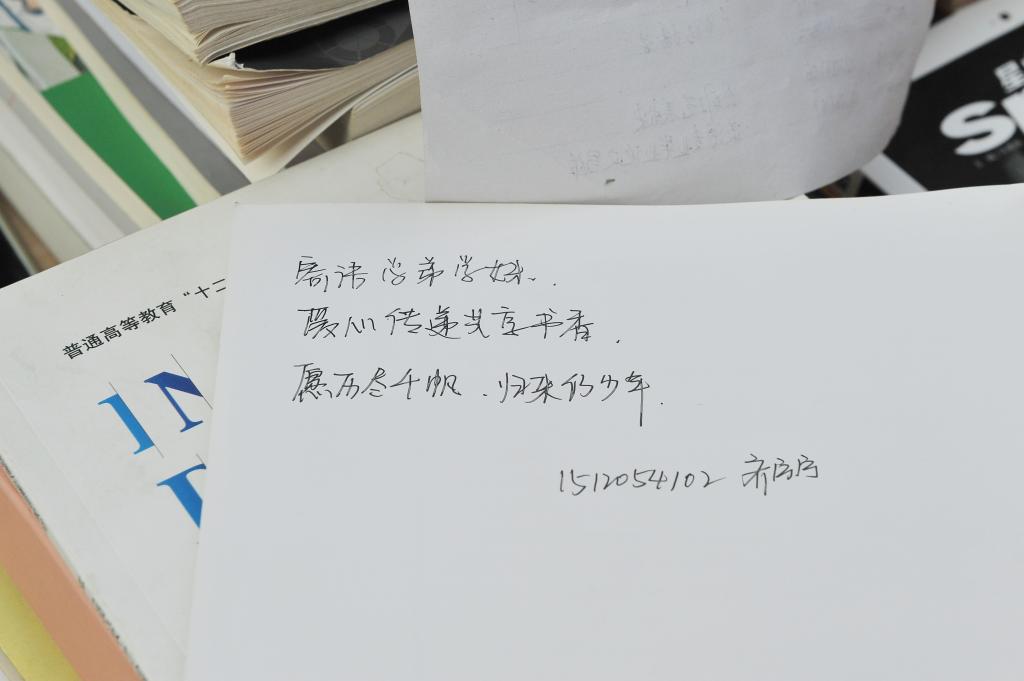 寄语学弟学妹..
爱心传递共享书香.
愿历尽千帆.归来仍少年.
1512054102 齐宁宁
普通高等教育“十二
IN